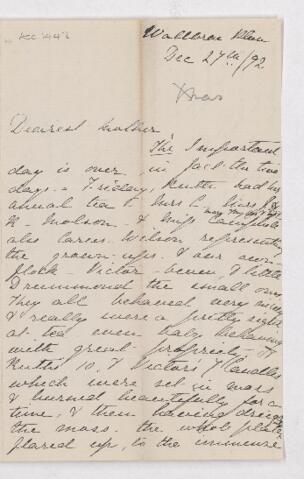 Dec 27th/92
Xmas
Dearest Mother
The Important
day is over, in fact the two
days. Friday, Ruth had her
annual tea & Mrs
K. Molson & Miss Campbell
also Carus-Wilson represented
the grown-ups. & our own
flock - Victor & little
Drummond the small ones
They all behaved very nicely
& really were a pretty sight
at tea even baby behaving
with great propriety.
Ruth's 10, & Victor's 7 candles
which were set in moss
& burned beautifully for a
time, & then having dried
the moss. the whole plate
flared up, to the immense